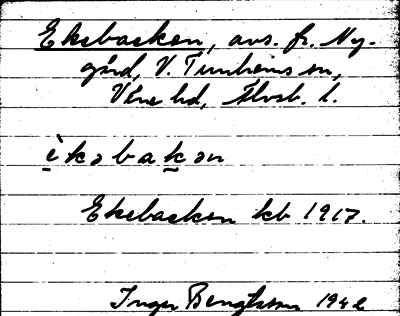 Ekebacken, avs. fr. Ny-
gård, V. Tunhems sn,
Väne hd, Älvsb. l.
èkəbakən
Ekebacken kb 1917.
Inger Bengtsson